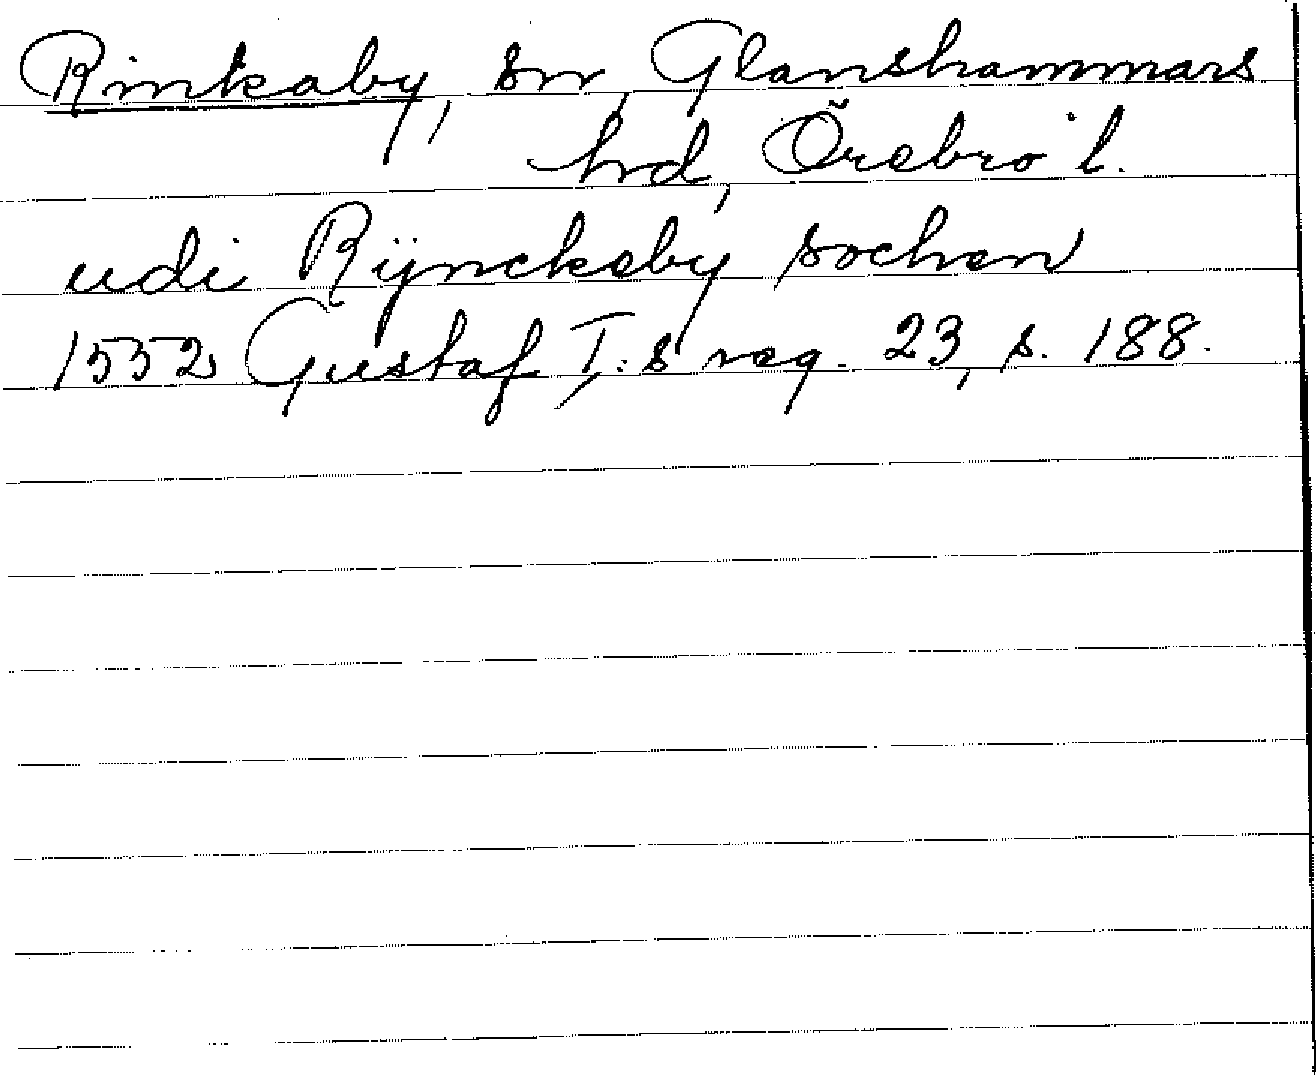 Rinkaby, sn, Glanshammars
hrd, Örebro l.
udi Rÿnckeby sochen
1552 Gustaf I:s reg. 23, s. 188.